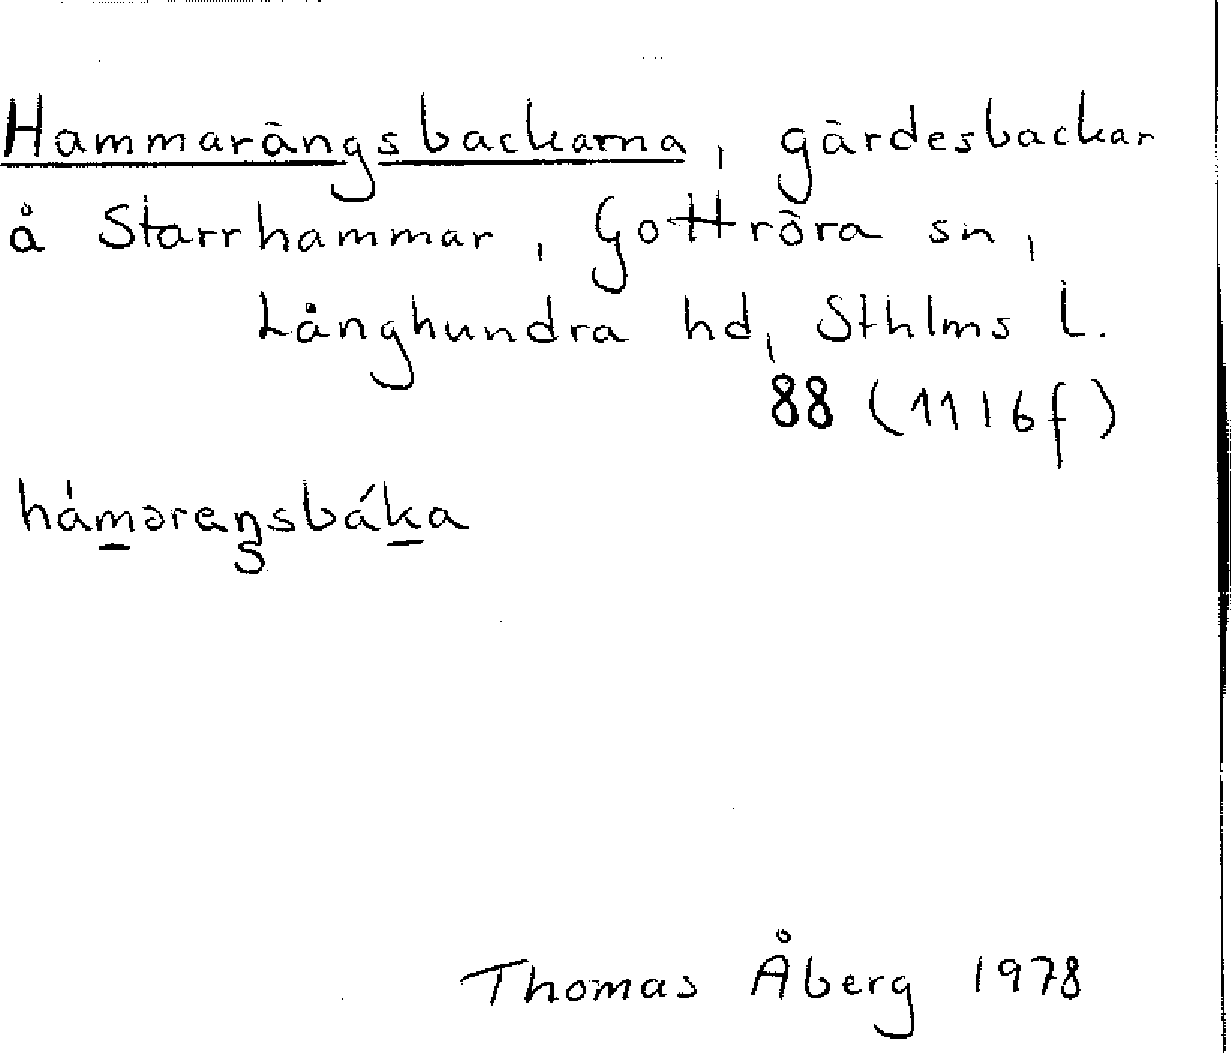 Hammarängsbackarna, gärdesbackar
å Starrhammar, Gottröra sn,
Långhundra hd, Sthlms l.
88 (1116f)
háməreŋsbáka
Thomas Åberg 1978